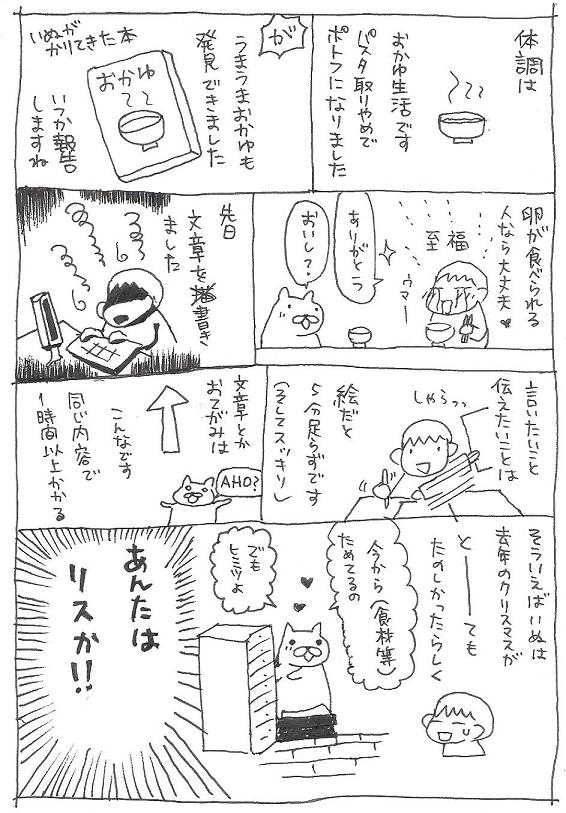 体調は
おかゆ生活です
パスタ取りやめで
ポトフになりました
が
うまうまおかゆも
発見できました
いぬが
かりてきた本
おかゆ
いつか報告
しますね
卵が食べられる
人なら大丈夫♥
至福
ウマー
ありがとう
おいし?
先日
文章を書き
ました
言いたいこと
伝えたいことは
しゃらっっ
絵だと
5分足らずです
(そしてスッキリ)
文章とか
おてがみは
こんなです
同じ内容で
1時間以上かかる
AHO?
そういえばいぬは
去年のクリスマスが
とーーても
たのしかったらしく
今から(食材等)
ためてるの
でも
ヒミツよ
あんたは
リスか!!